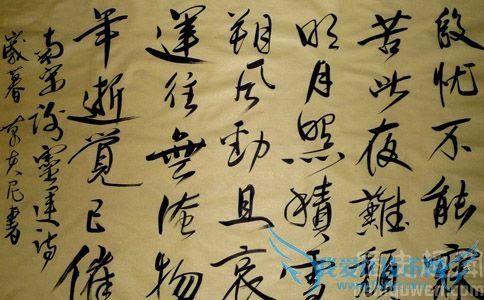 殷忧不能寐
苦此夜難頹
明月照積雪
朔風動且哀
運往無淹物
年逝覺已催
南宋謝靈運詩
歲暮 書